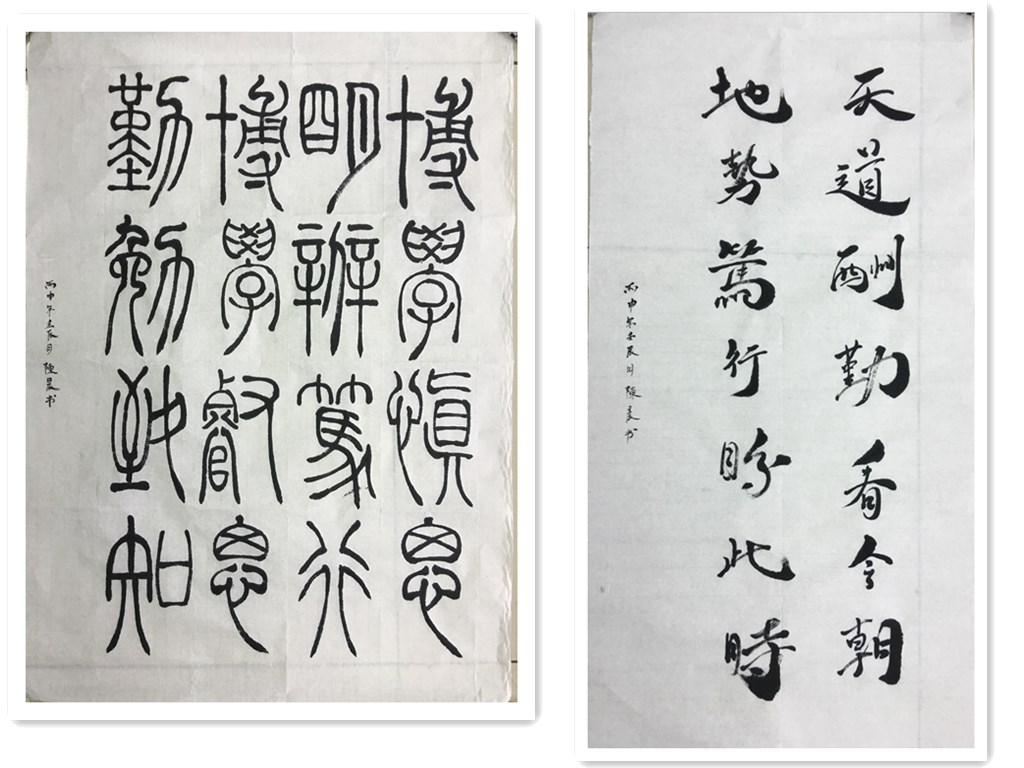 博學慎思
明辨篤行
博學叡思
勤勉致知
丙申年壬辰月 陳书
天道酬勤看今朝
地勢篤行盼此時
丙申年壬辰月 陳书